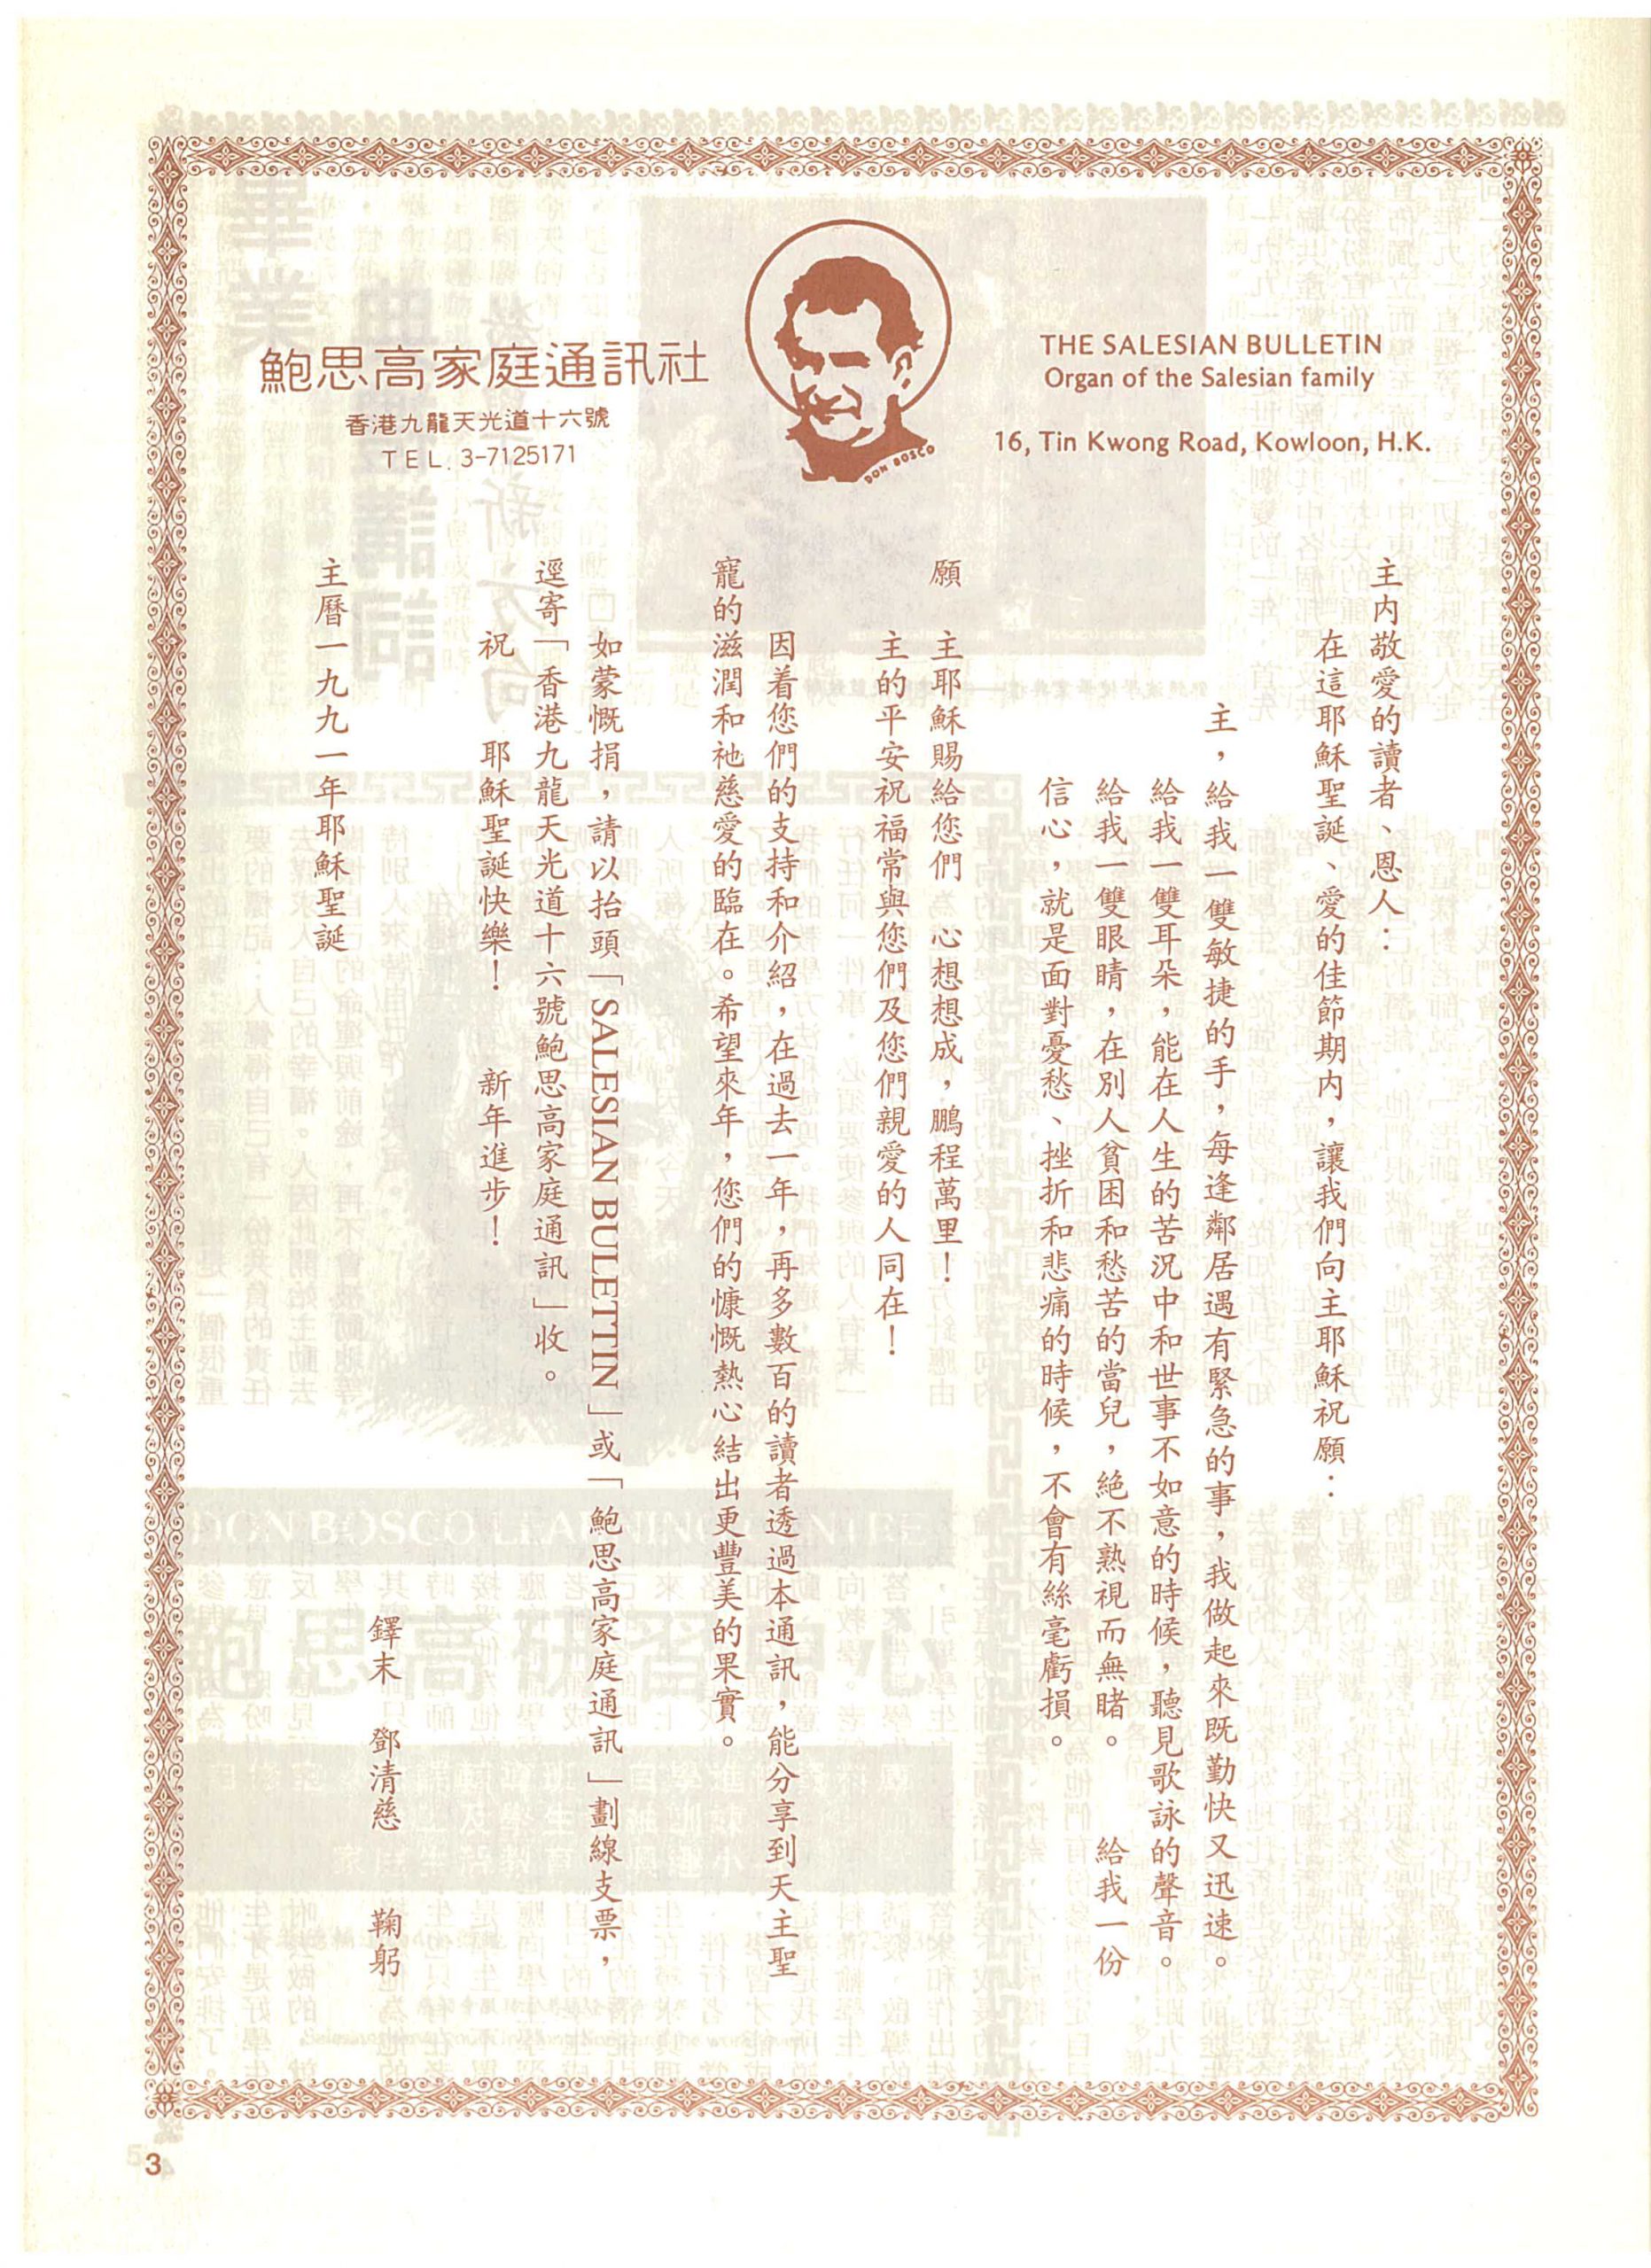 鮑思高家庭通訊社
香港九龍天光道十六號
TEL. 3-7125171
DON BOSCO
THE SALESIAN BULLETIN
Organ of the Salesian family
16, Tin Kwong Road, Kowloon, H.K.
主內敬愛的讀者、恩人：
在這耶穌聖誕、愛的佳節期內，讓我們向主耶穌祝願：
主，給我一雙敏捷的手，每逢鄰居遇有緊急的事，我做起來既勤快又迅速。
給我一雙耳朵，能在人生的苦況中和世事不如意的時候，聽見歌詠的聲音。
給我一雙眼睛，在別人貧困和愁苦的當兒，絕不熟視而無睹。　給我一份
信心，就是面對憂愁、挫折和悲痛的時候，不會有絲毫虧損。
願　主耶穌賜給您們　心想想成，鵬程萬里！
主的平安祝福常與您們及您們親愛的人同在！
因着您們的支持和介紹，在過去一年，再多數百的讀者透過本通訊，能分享到天主聖
寵的滋潤和祂慈愛的臨在。希望來年，您們的慷慨熱心結出更豐美的果實。
如蒙慨捐，請以抬頭「SALESIAN BULETTIN」或「鮑思高家庭通訊」劃線支票，
逕寄「香港九龍天光道十六號鮑思高家庭通訊」收。
祝　耶穌聖誕快樂！　新年進步！
鐸末　鄧清慈　鞠躬
主曆一九九一年耶穌聖誕
3